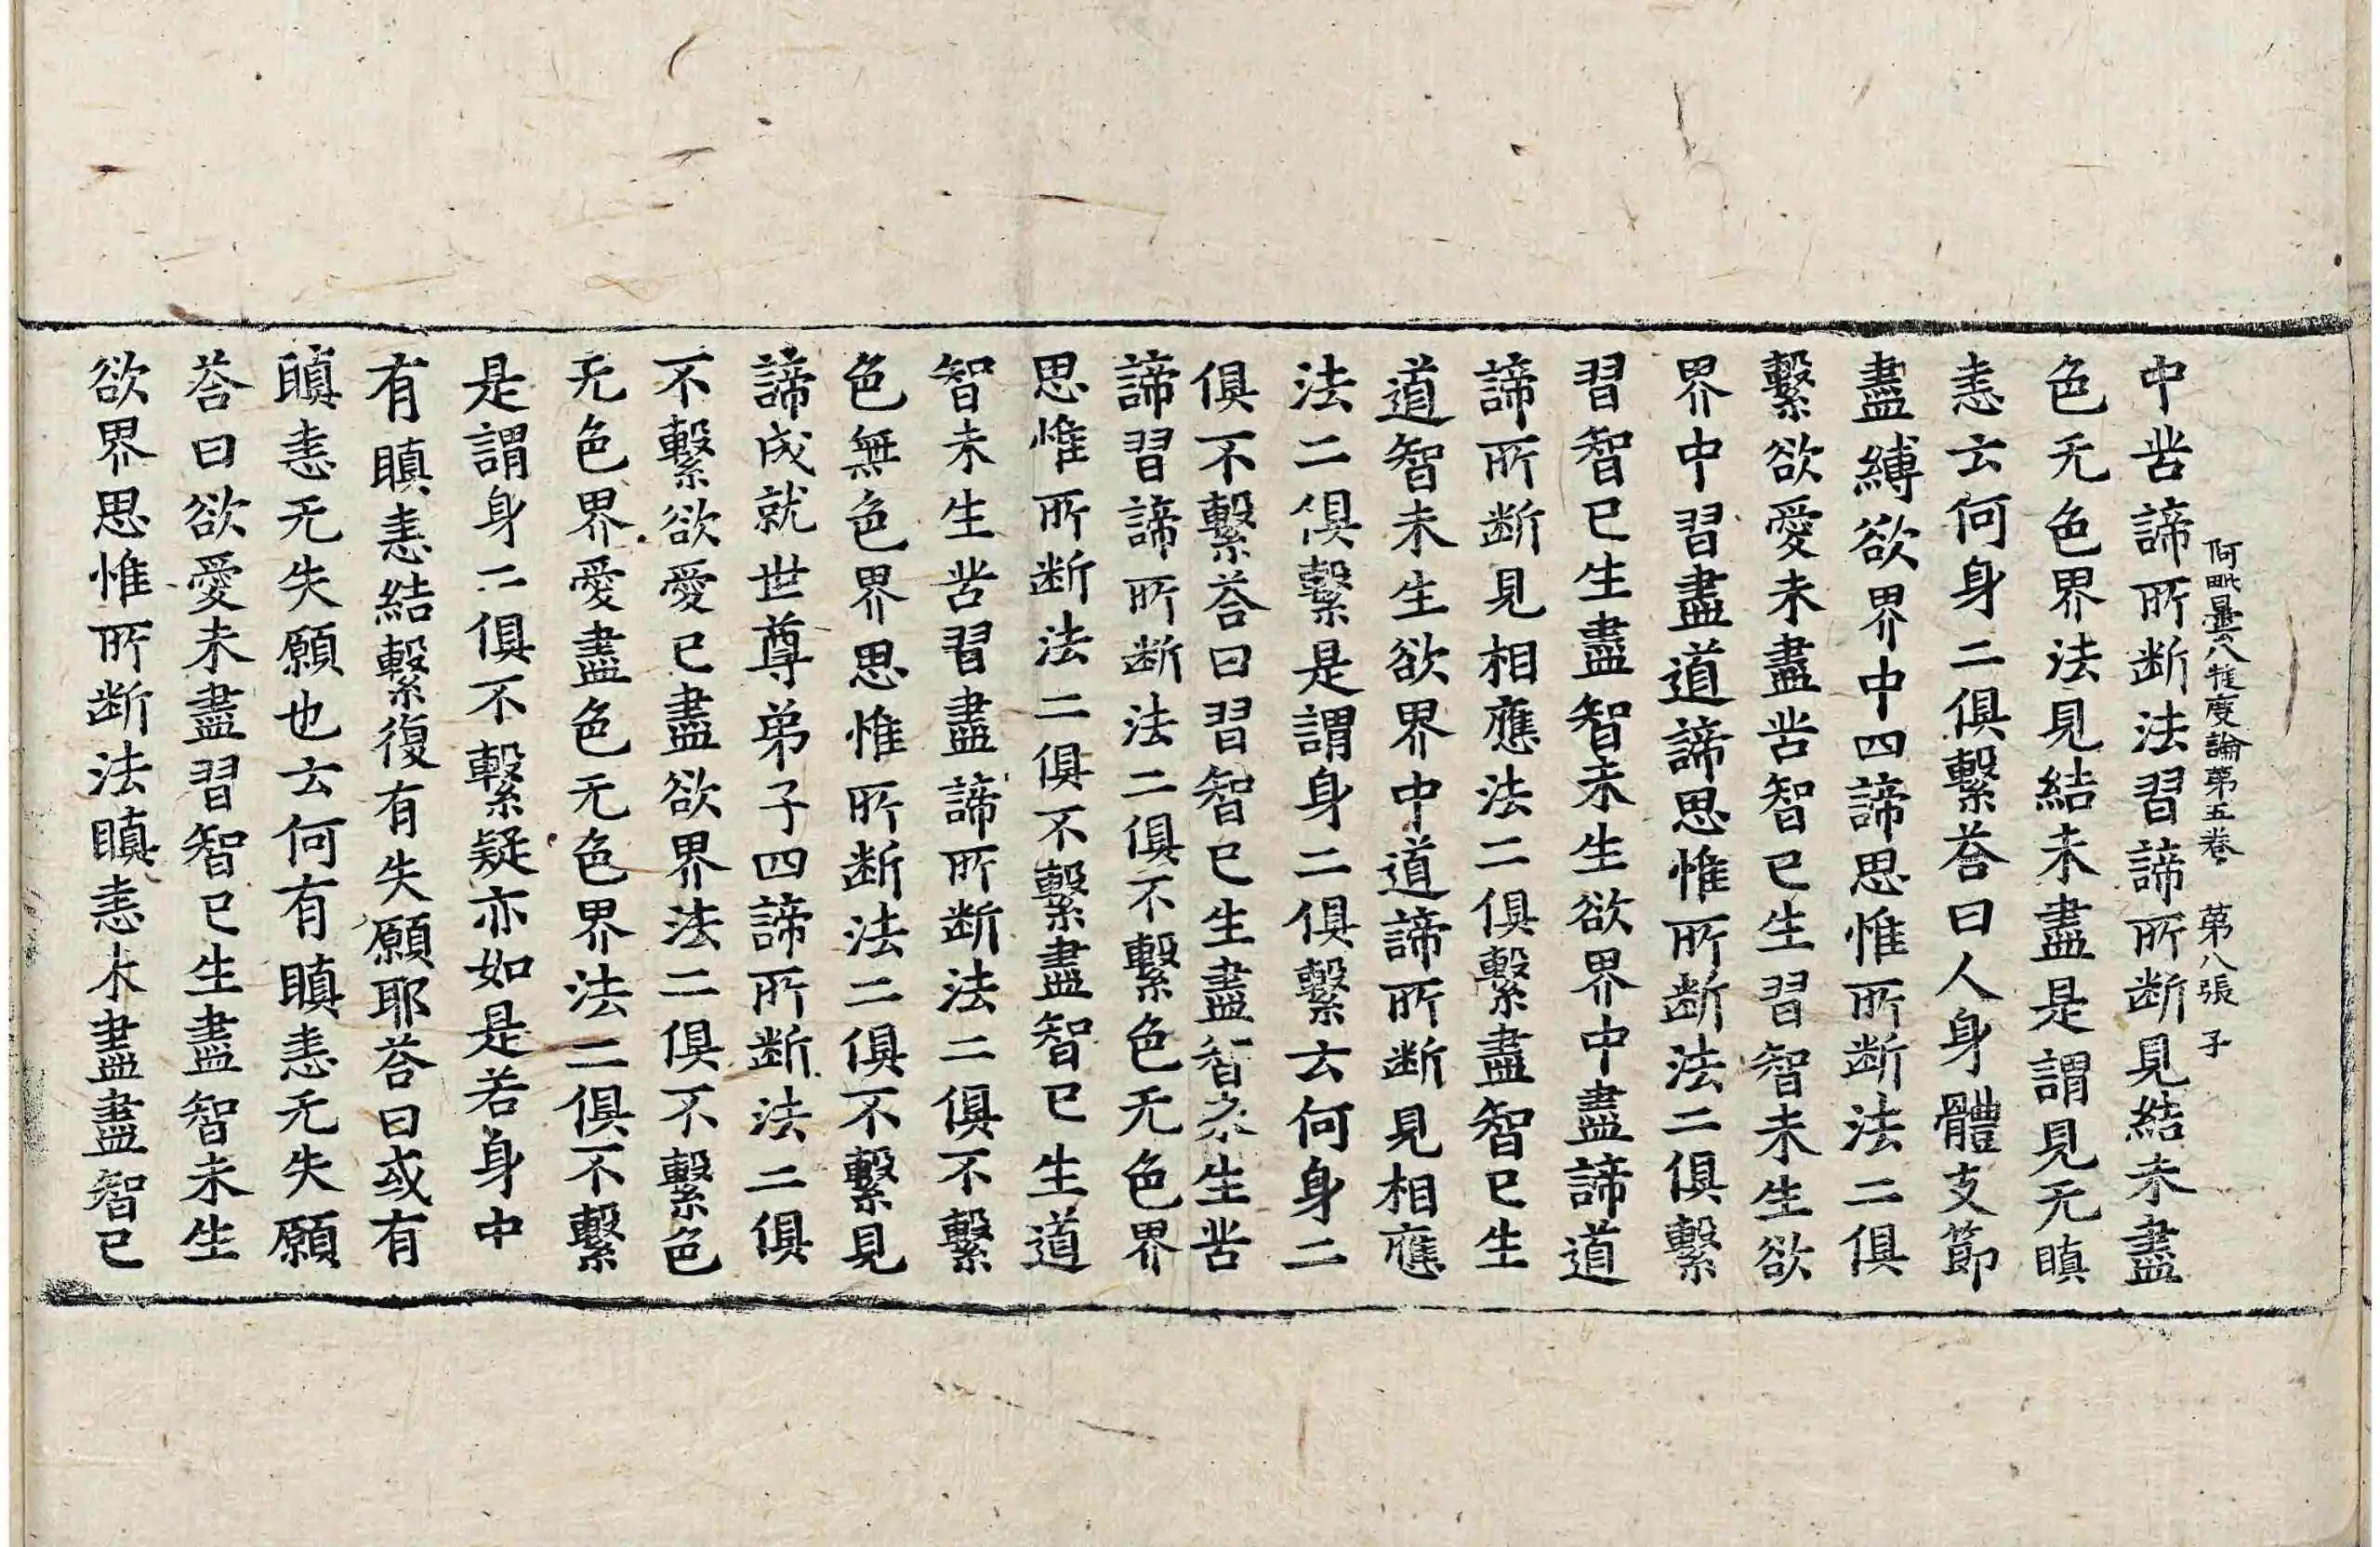 阿毗曇八犍度論第五卷 第八張 子
中苦諦所斷法習諦所斷見結未盡
色无色界法見結未盡是謂見无瞋
恚云何身二俱繫荅曰人身體支節
盡縛欲界中四諦思惟所斷法二俱
繫欲愛未盡苦智已生習智未生欲
界中習盡道諦思惟所斷法二俱繫
習智已生盡智未生欲界中盡諦道
諦所斷見相應法二俱繫盡智已生
道智未生欲界中道諦所斷見相應
法二俱繫是謂身二俱繫云何身二
俱不繫荅曰習智已生盡智未生苦
諦習諦所斷法二俱不繫色无色界
思惟所斷法二俱不繫盡智已生道
智未生苦習盡諦所斷法二俱不繫
色無色界思惟所斷法二俱不繫見
諦成就世尊弟子四諦所斷法二俱
不繫欲愛已盡欲界法二俱不繫色
无色界愛盡色无色界法二俱不繫
是謂身二俱不繫疑亦如是若身中
有瞋恚結繫復有失願耶荅曰或有
瞋恚无失願也云何有瞋恚无失願
荅曰欲愛未盡習智已生盡智未生
欲界思惟所斷法瞋恚未盡盡智已